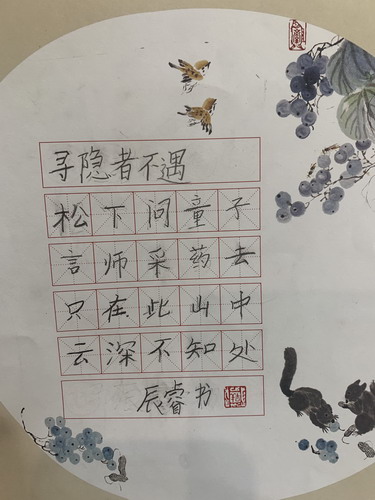 寻隐者不遇
松下问童子
言师采药去
只在此山中
云深不知处
辰睿书